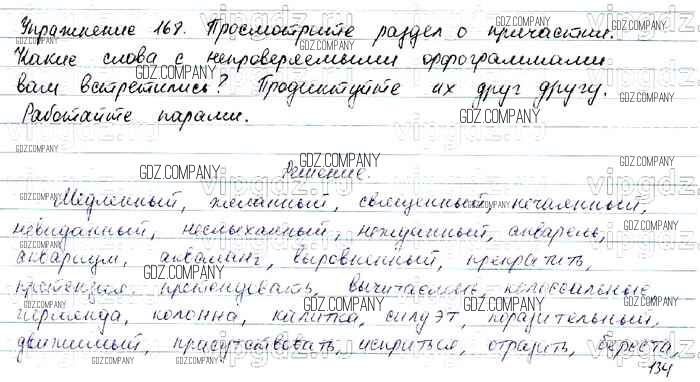 Упражнение 168. Просмотрите раздел о причастии.
Какие слова с непроверяемыми орфограммами
вам встретились? Продиктуйте их друг другу.
Работайте парами.
Решение.
Медленный, желанный, священный, нечаянный,
невиданный, неслыханный, нежданный, акварель,
аквариум, акваланг, выровненный, прекратить,
претензия, претендовать, вычитаемые, колоссальные,
гирлянда, колонна, калитка, силуэт, поразительный,
движимый, присутствовать, испариться, отразить, береста,
134
GDZ.COMPANY
vipgdz.ru